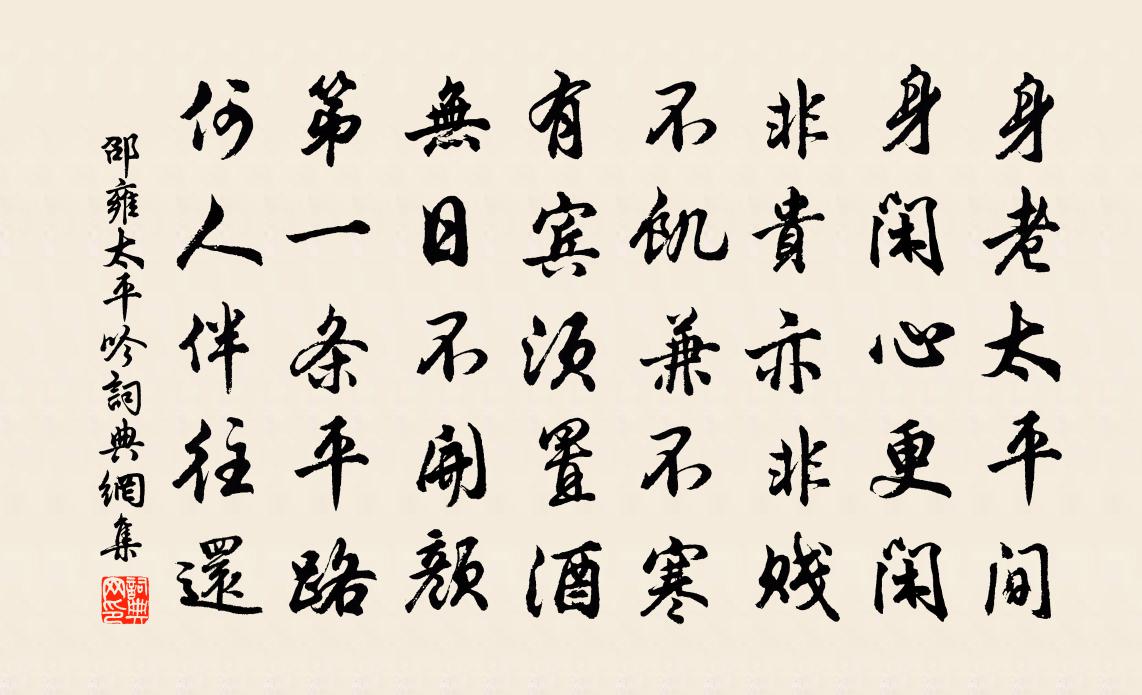 身老太平间
身闲心更闲
非貴亦非贱
不飢兼不寒
有宾须置酒
無日不開颜
第一条平路
何人伴往還
邵雍太平吟詞典網集
詞典网印